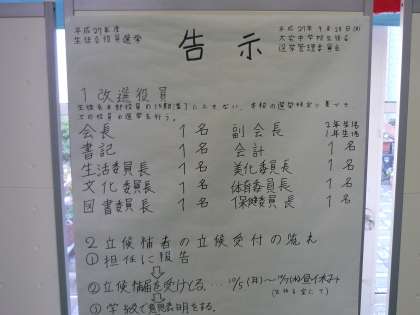 平成27年度
生徒会役員選挙
告示
平成27年9月28日(月)
大宮中学校生徒会
選挙管理委員会
1 改選役員
生徒会本部役員の任期満了にともない、本校の選挙規定に基づき
次の役員の選挙を行う。
会長 1名 副会長 2年生1名 1年生1名
書記 1名 会計 1名
生活委員長 1名 美化委員長 1名
文化委員長 1名 体育委員長 1名
図書委員長 1名 保健委員長 1名
2 立候補者の立候補受付の流れ
①担任に報告
②立候補届を受けとる…10/5(月)~10/7(水)昼休み
③学級で意思表明をする。